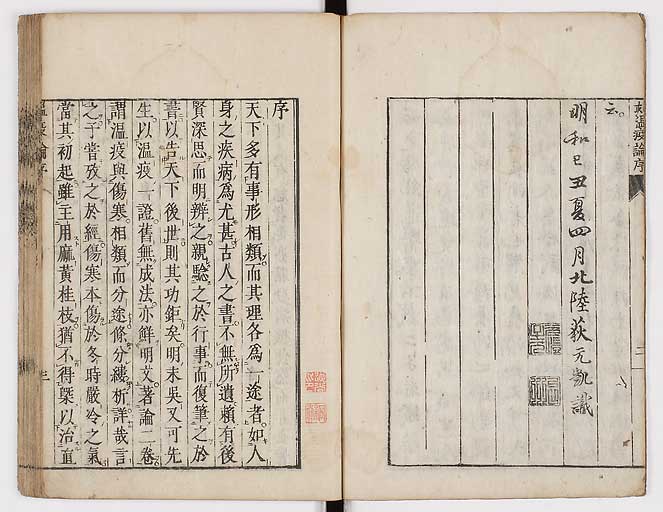 刻温疫論序
云
明和己丑夏四月北陸荻元凱識
序
天下多有事形相類而其理各爲一途者如人
身之疾病爲尤甚古人之書不無所遺賴有後
賢深思而明辨之親驗之於行事而復筆之於
書以告天下後世則其功鉅矣明末吳又可先
生以温疫一證舊無成法亦鮮明文著論二卷
謂温疫與傷寒相類而分途條分縷析詳哉言
之于嘗攷之於經傷寒本傷於冬時嚴冷之氣
當其初起雖王用麻黃桂枝猶不得槩以治直